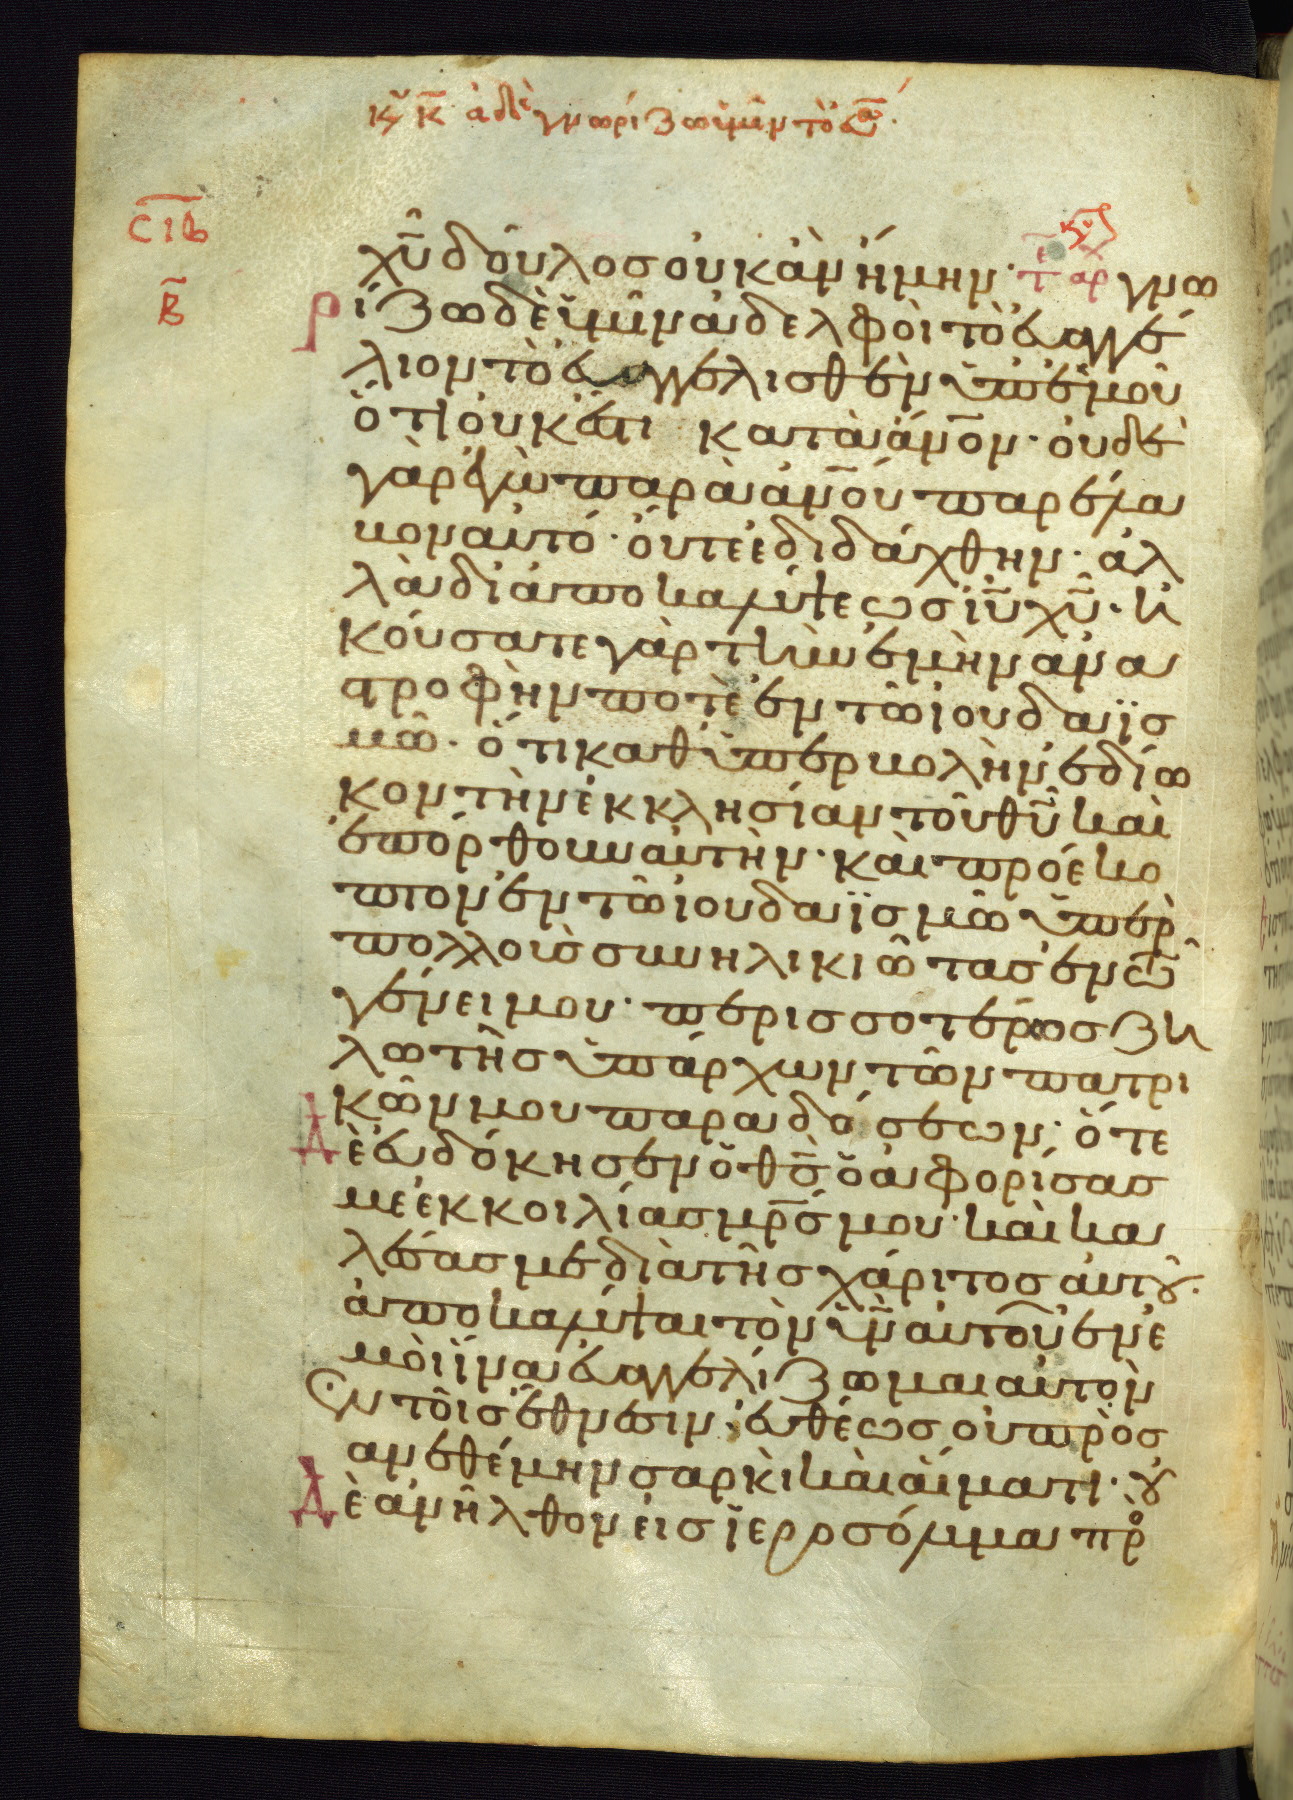 κυ κ ἀδε γνωρίζω ὑμῖν τὸ ευα
σιβ
β
χῦ δοῦλοσ οὐκ ἀν ἤμην· αρχ γνω
ρίζω δὲ ὑμῖν ἀδελφοὶ τὸ εὐαγγέ
λιον τὸ εὐαγγελισθὲν ὑπ' ἐμοῦ
ὅτι οὐκ ἔστι κατὰ ἄνον· οὐδὲ
γὰρ ἐγὼ παρὰ ἀνου παρέλα
βον αὐτό· οὔτε ἐδιδάχθην· ἀλ
λὰ δι' ἀποκαλύψεωσ ἰῦ χῦ· ἠ
κούσατε γὰρ τὴν ἐμὴν ἀνα
στροφήν ποτὲ ἐν τῶ ἰουδαϊσ
μῶ· ὅτι καθ' ὑπερβολὴν ἐδίω
κον τὴν ἐκκλησίαν τοῦ θῦ καὶ
ἐπόρθουν αὐτήν· καὶ προέκο
πτον ἐν τῶ ἰουδαϊσμῶ ὑπὲρ
πολλοὺσ συνηλικιώτασ ἐν τῶ
γένει μου· περισσοτέρωσ ζη
λωτὴσ ὑπάρχων τῶν πατρι
κῶν μου παραδόσεων· ὅτε
δὲ εὐδόκησεν ὁ θσ ὁ ἀφορίσασ
με ἐκ κοιλίασ μρσ μου· καὶ κα
λέσασ με διὰ τῆσ χάριτοσ αὐτοῦ·
ἀποκαλύψαι τὸν υν αὐτοῦ ἐν ἐ
μοὶ ἵνα εὐαγγελίζωμαι αὐτὸν
ἐν τοῖσ ἔθνεσιν· εὐθέωσ οὐ προσ
ανεθέμην σαρκὶ καὶ αἵματι· οὐ
δὲ ἀνῆλθον εἰσ ἱεροσόλυμα πρὸ